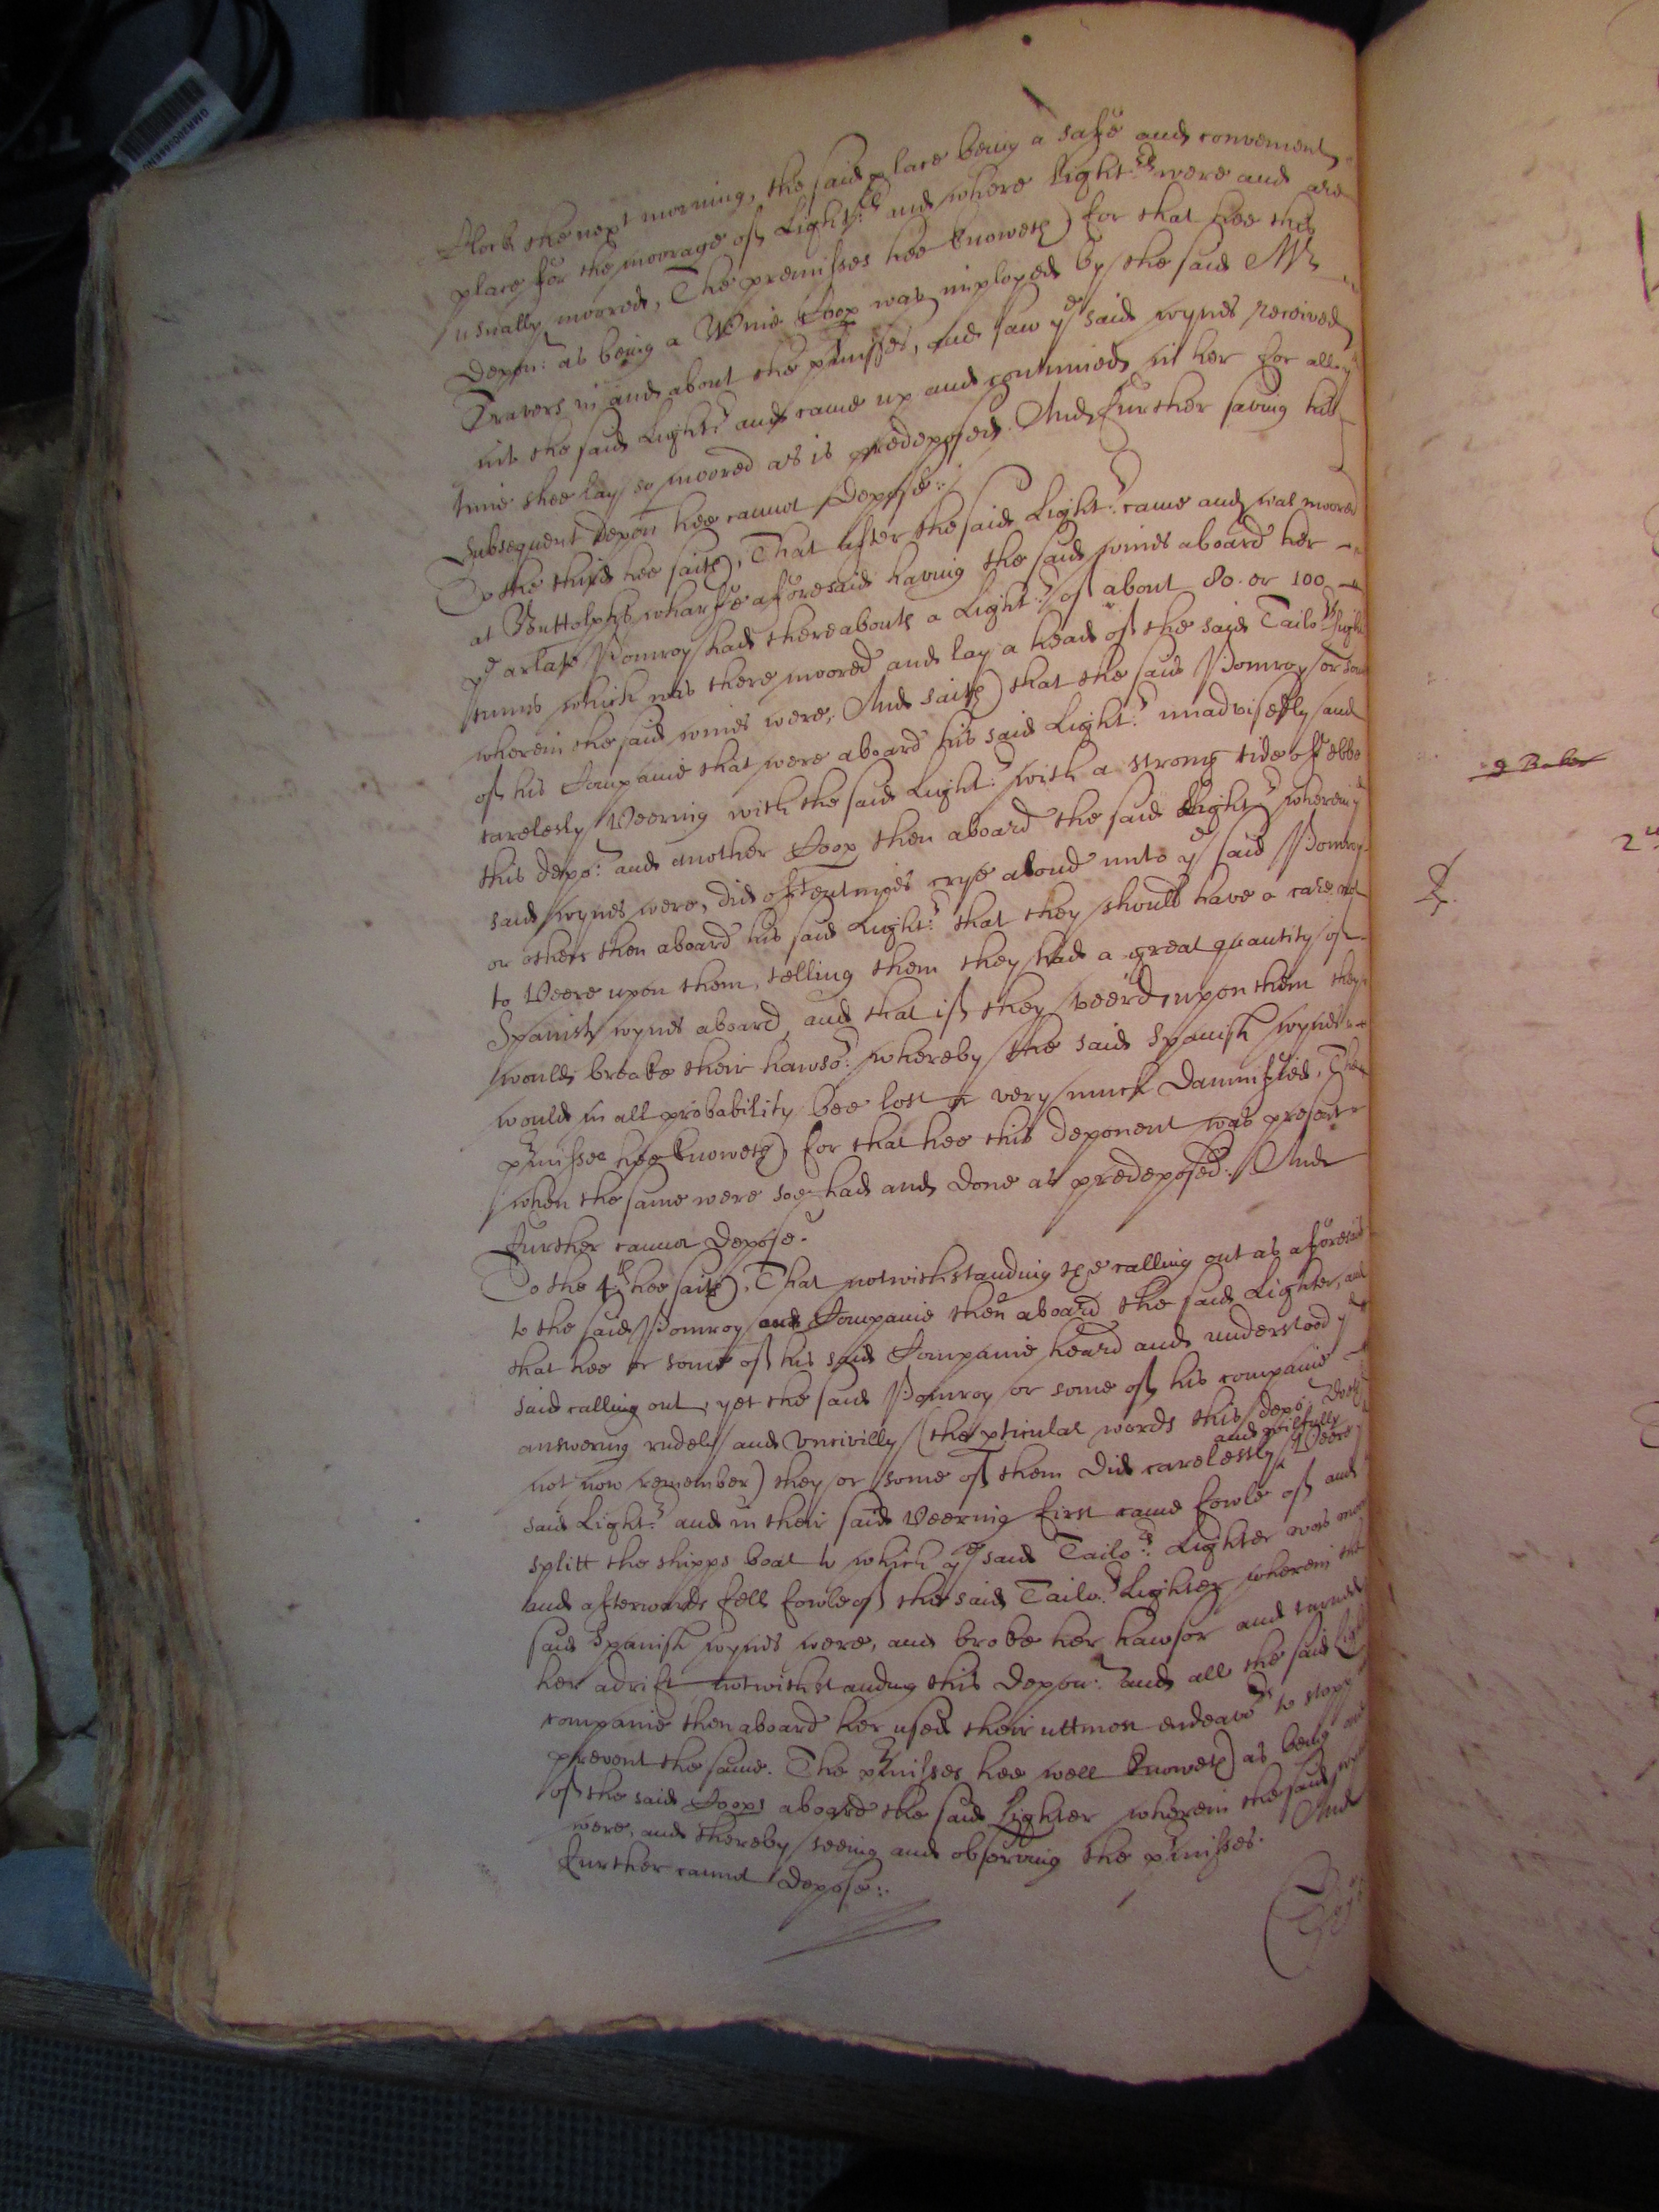 Clock the next morning, the said place being a safe and convenient
place for the moorage of Light:rs and where Light:rs were and are
usually moored, The premisses hee knoweth for that hee this
depon: as being a Wine Coop was imployed by the said Mr
Travers in and about the pmisses, and saw ye said wynes received
into the said Light:r and came up and continued in her for all ye
time shee lay so moored as is predeposed. And further saving his
subsequent depon hee cannot depose:.
To the third hee saith, That after the said Light:r came and was moored
at Buttolphs wharfe aforesaid having the said wines aboard her
ye arlate Pomroy had thereabouts a Light:r of about 80. or 100
tunns which was there moored and lay a head of the said Tailors Light
wherein the said wines were, And saith that the said Pomroy or some
of his Companie that were aboard his said Light:r unadvisedly and
carelesly Veering with the said Light:r with a strong tide of ebbe
this depo: and another Coop then aboard the said Light:r wherein ye
said wynes were, did oftentimes crye aloud unto ye said Pomroy
or others then aboard his said Light:r that they should have a care not
to Veere upon them, telling them they had a great quantity of
Spanish wynes aboard, and that if they veer'd upon them they
would breake their hawsor: whereby the said Spanish wynes
would in all probability bee lost or very much damnified, The
pmisses hee knoweth for that hee this deponent was present
when the same were soe had and done as predeposed. And
further cannot depose.
To the 4th hee saith, That notwithstanding the calling out as aforesaid
to the said Pomroy and Companie then aboard the said Lighter, and
that hee or some of his said Companie heard and understood ye
said calling out, yet the said Pomroy or some of his companie
answering rudely and Uncivilly (the pticular words this depo: doth
not now remember) they or some of them did carelessly and wilfully Veere
said Light:r and in their said Veering first came fowle of and
splitt the shipps boat to which ye said Tailo:rs Lighter was
and afterwards fell fowle of the said Tailo:rs Lighter wherein the
said Spanish wynes were, and broke her hawsor and turned
her adrift notwithstanding this depon:t and all the said Light
companie then aboard her used their uttmost endeavors to stopp
prevent the same. The pmisses hee well knoweth as being one
of the said Coops aboard the said Lighter wherein the said
were, and thereby seeing and observing the pmisses. And
further cannot depose:.